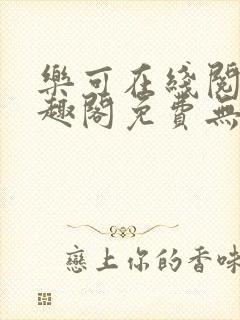 樂可在綫閱
趣閣免費無
戀上你的香味